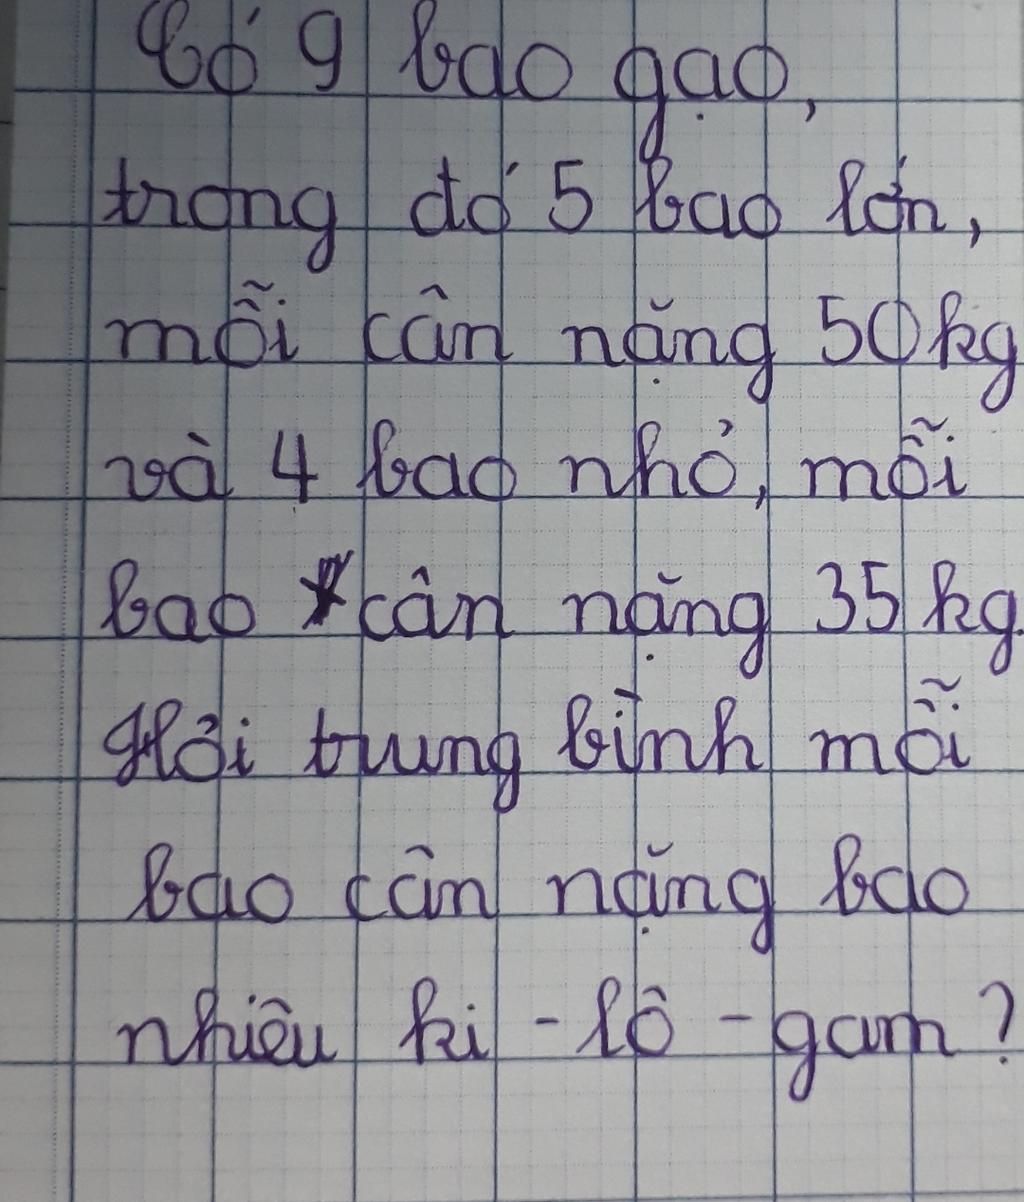 Có 9 bao gạo,
trong đó 5 bao lớn,
mỗi cân nặng 50kg
và 4 bao nhỏ, mỗi
bao cân nặng 35 kg.
Hỏi trung bình mỗi
bao cân nặng bao
nhiêu ki - lô - gam ?